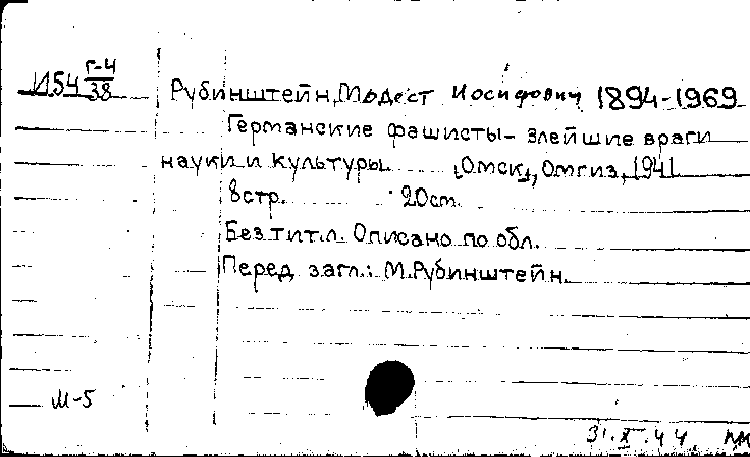 И54 Г-4/38
Рубинштейн, Модест Иосифович 1894-1969
Германские фашисты - злейшие враги
науки и культуры. [Омск], Омгиз, 1941
8 стр. 20 cm.
Без тит.л. Описано по обл.
Перед загл.: М.Рубинштейн.
М-5
31.X.44.